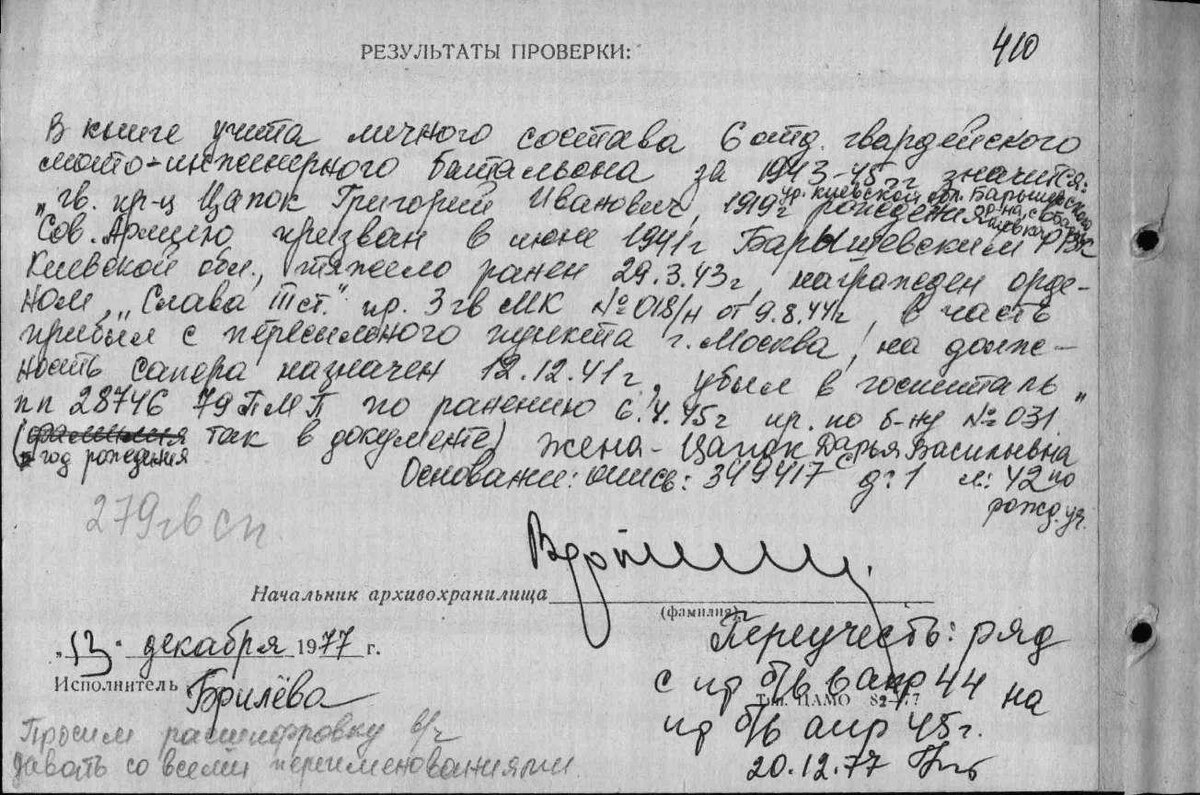 410
РЕЗУЛЬТАТЫ ПРОВЕРКИ:
В книге учета личного состава 6 отд. гвардейского
мото-инженерного батальона за 1943-45 гг значится:
"гв. кр-ц Цапок Григорий Иванович, 1919г рождения,
ур. Киевской обл. Барышевского
р-на, с.
Сов. Армию призван в июне 1941г Барышевским РВК
Киевской обл., тяжело ранен 29.3.43г, награжден орде-
ном "Слава IIIст." пр. 3 гв МК №018/н от 9.8.44г, в часть
прибыл с пересыльного пункта г. Москва, на долж-
ность сапера назначен 12.12.41г, убыл в госпиталь
пп 28746 79 ПМП по ранению 6.4.45г пр. по б-ну №031."
(фамилия так в документе) жена - Цапок Дарья Васильевна
год рождения
Основание: опись: 349417с д: 1 л: 42 по
рожд. уч.
279 гв сп.
Начальник архивохранилища
(фамилия)
"13" декабря 1977 г.
Исполнитель Брилёва
Переучесть: ряд
с пр б/в 6 апр 44 на
Тип. ЦАМО 82-77
пр б/в апр 45г.
20.12.77
Просим расшифровку в/ч
давать со всеми переименованиями